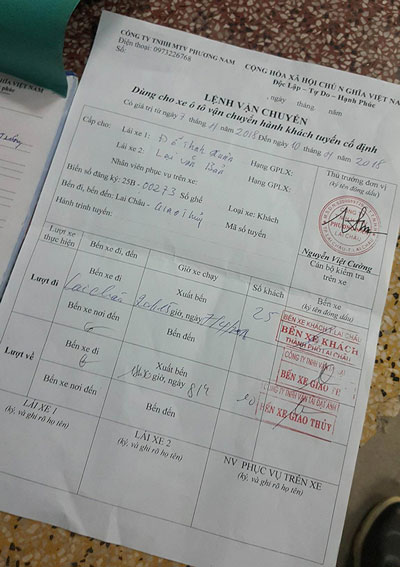 CÔNG TY TNHH MTV PHƯƠNG NAM
Điện thoại: 0973226768
Số:
CỘNG HÒA XÃ HỘI CHỦ NGHĨA VIỆT NAM
Độc Lập - Tự Do - Hạnh Phúc
, ngày tháng năm
LỆNH VẬN CHUYỂN
Dùng cho xe ô tô vận chuyển hành khách tuyến cố định
Có giá trị từ ngày 7 tháng 11 năm 2018 Đến ngày 10 tháng 11 năm 2018
Cấp cho: Lái xe 1: Hạng GPLX:
Lái xe 2: Lại văn Hạng GPLX:
Nhân viên phục vụ trên xe:
Biển số đăng ký: 25B - 00273 Số ghế Loại xe: Khách
Bến đi, bến đến: Lai Châu - Giao Thủy Mã số tuyến
Hành trình tuyến:
Thủ trưởng đơn vị
(ký tên đóng dấu)
PHƯƠNG
Nguyễn Việt Cường
Cán bộ kiểm tra trên xe
Lượt xe thực hiện
Bến đi, đến
Giờ xe chạy
Số khách
Bến xe
(ký tên đóng dấu)
Lượt đi
Bến xe đi
Lai Châu
Xuất bến
giờ, ngày
25
BẾN XE KHÁCH LAI CHÂU
BẾN XE KHÁCH
THÀNH PHỐ LAI CHÂU
Bến xe nơi đến
Bến đến
CÔNG TY TNHH VẬN
BẾN XE GIAO
Lượt về
Bến xe đi
Xuất bến
giờ, ngày
CÔNG TY TNHH VẬN TẢI ĐẠT ANH
BẾN XE GIAO THỦY
Bến xe nơi đến
Bến đến
LÁI XE 1
(ký, và ghi rõ họ tên)
LÁI XE 2
(ký, và ghi rõ họ tên)
NV PHỤC VỤ TRÊN XE
(ký, và ghi rõ họ tên)